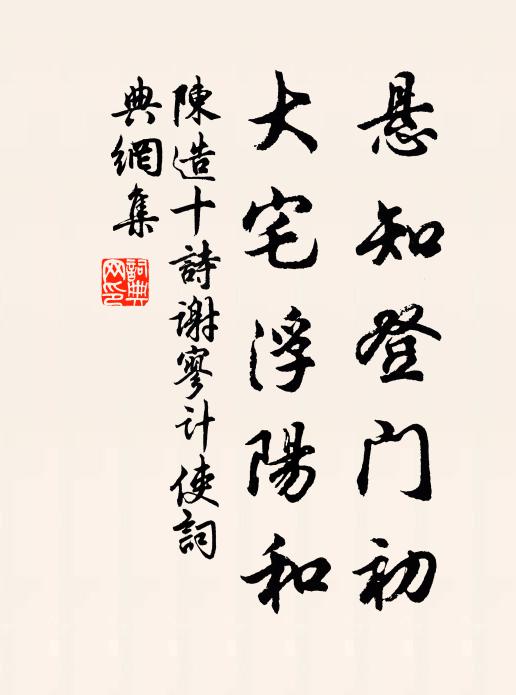 悬知登门初
大宅浮陽和
陳造十詩谢寥计使詞
典網集
詞典
网印